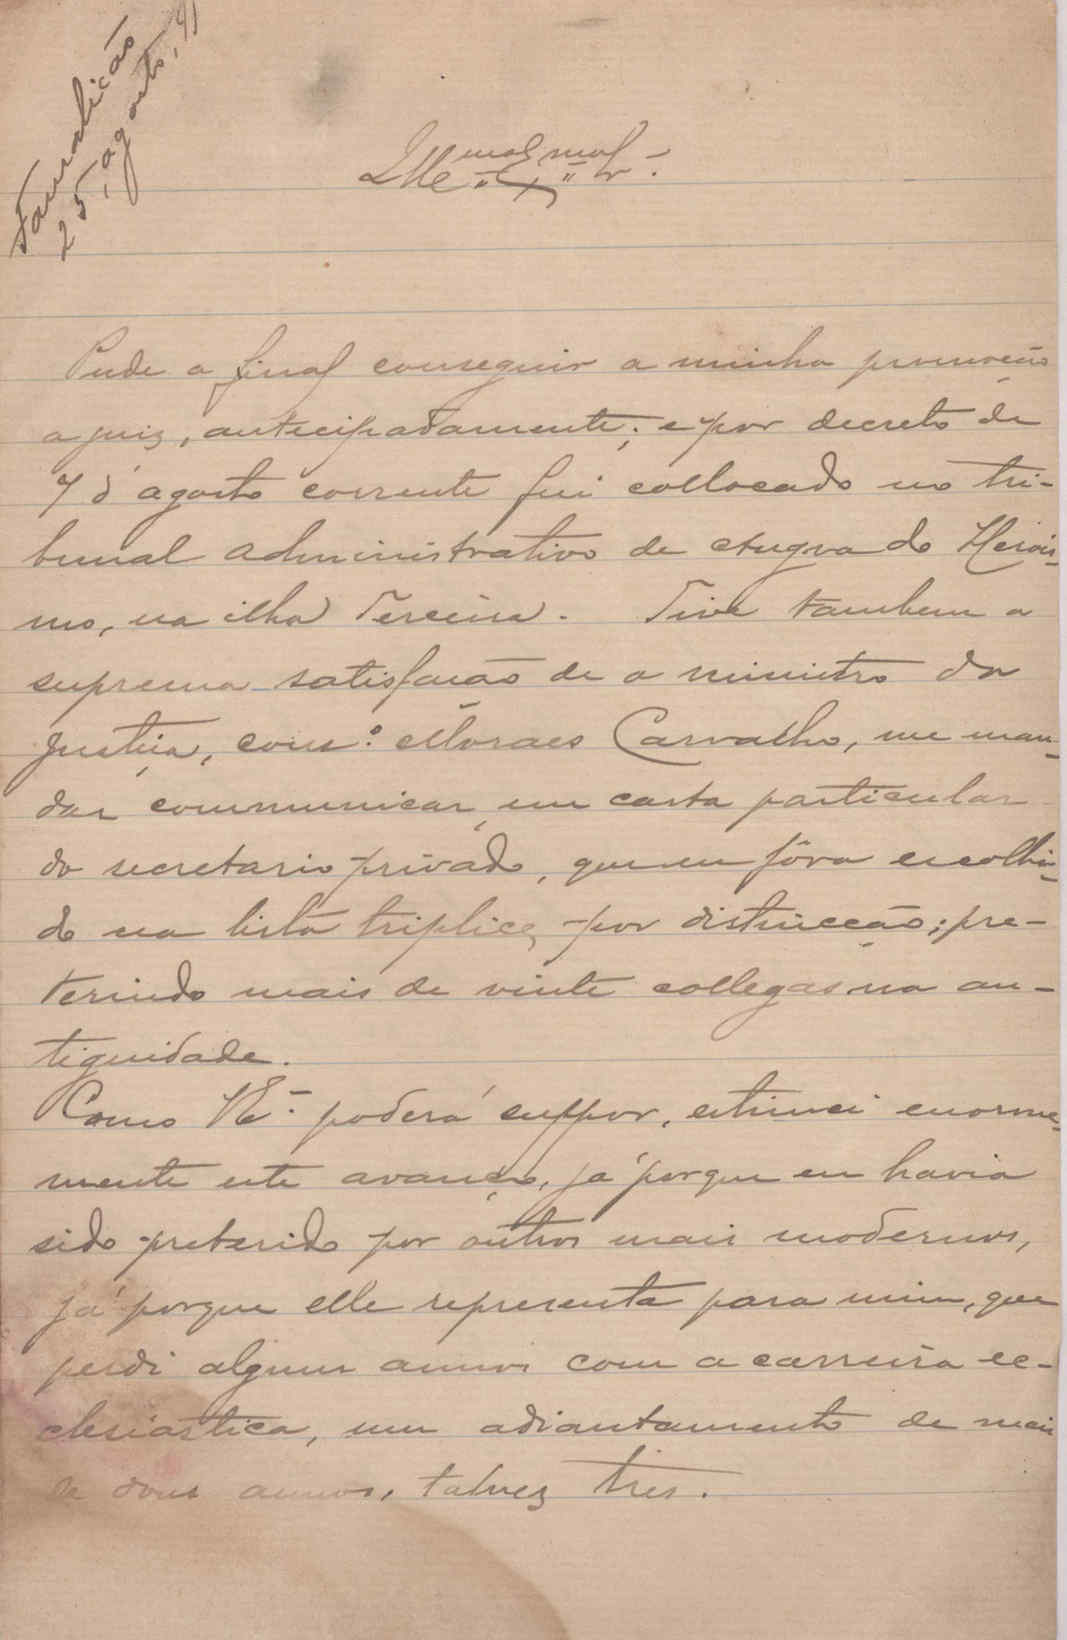 Famalicão
25, agosto, 91
Ill.mo Ex.mo Sr.
Pude a final conseguir a minha promoção
a juiz, antecipadamente; e por decreto de
7 d'agosto corrente fui collocado no tri-
bunal administrativo de Angra do Herois-
mo, na ilha Terceira. Tive tambem a
suprema satisfação de o ministro da
justiça, cons.º Moraes Carvalho, me man-
dar communicar, em carta particular
do secretario privado, que eu fôra escolhi-
do na lista triplice, por distincção; pre-
terindo mais de vinte collegas na an-
tiguidade.
Como VE. poderá suppor, estimei enorme-
mente este avanço, já porque eu havia
sido preterido por outros mais modernos,
já porque elle representa para mim, que
perdi alguns annos com a carreira ec-
clesiastica, um adiantamento de mais
de dous annos, talvez tres.